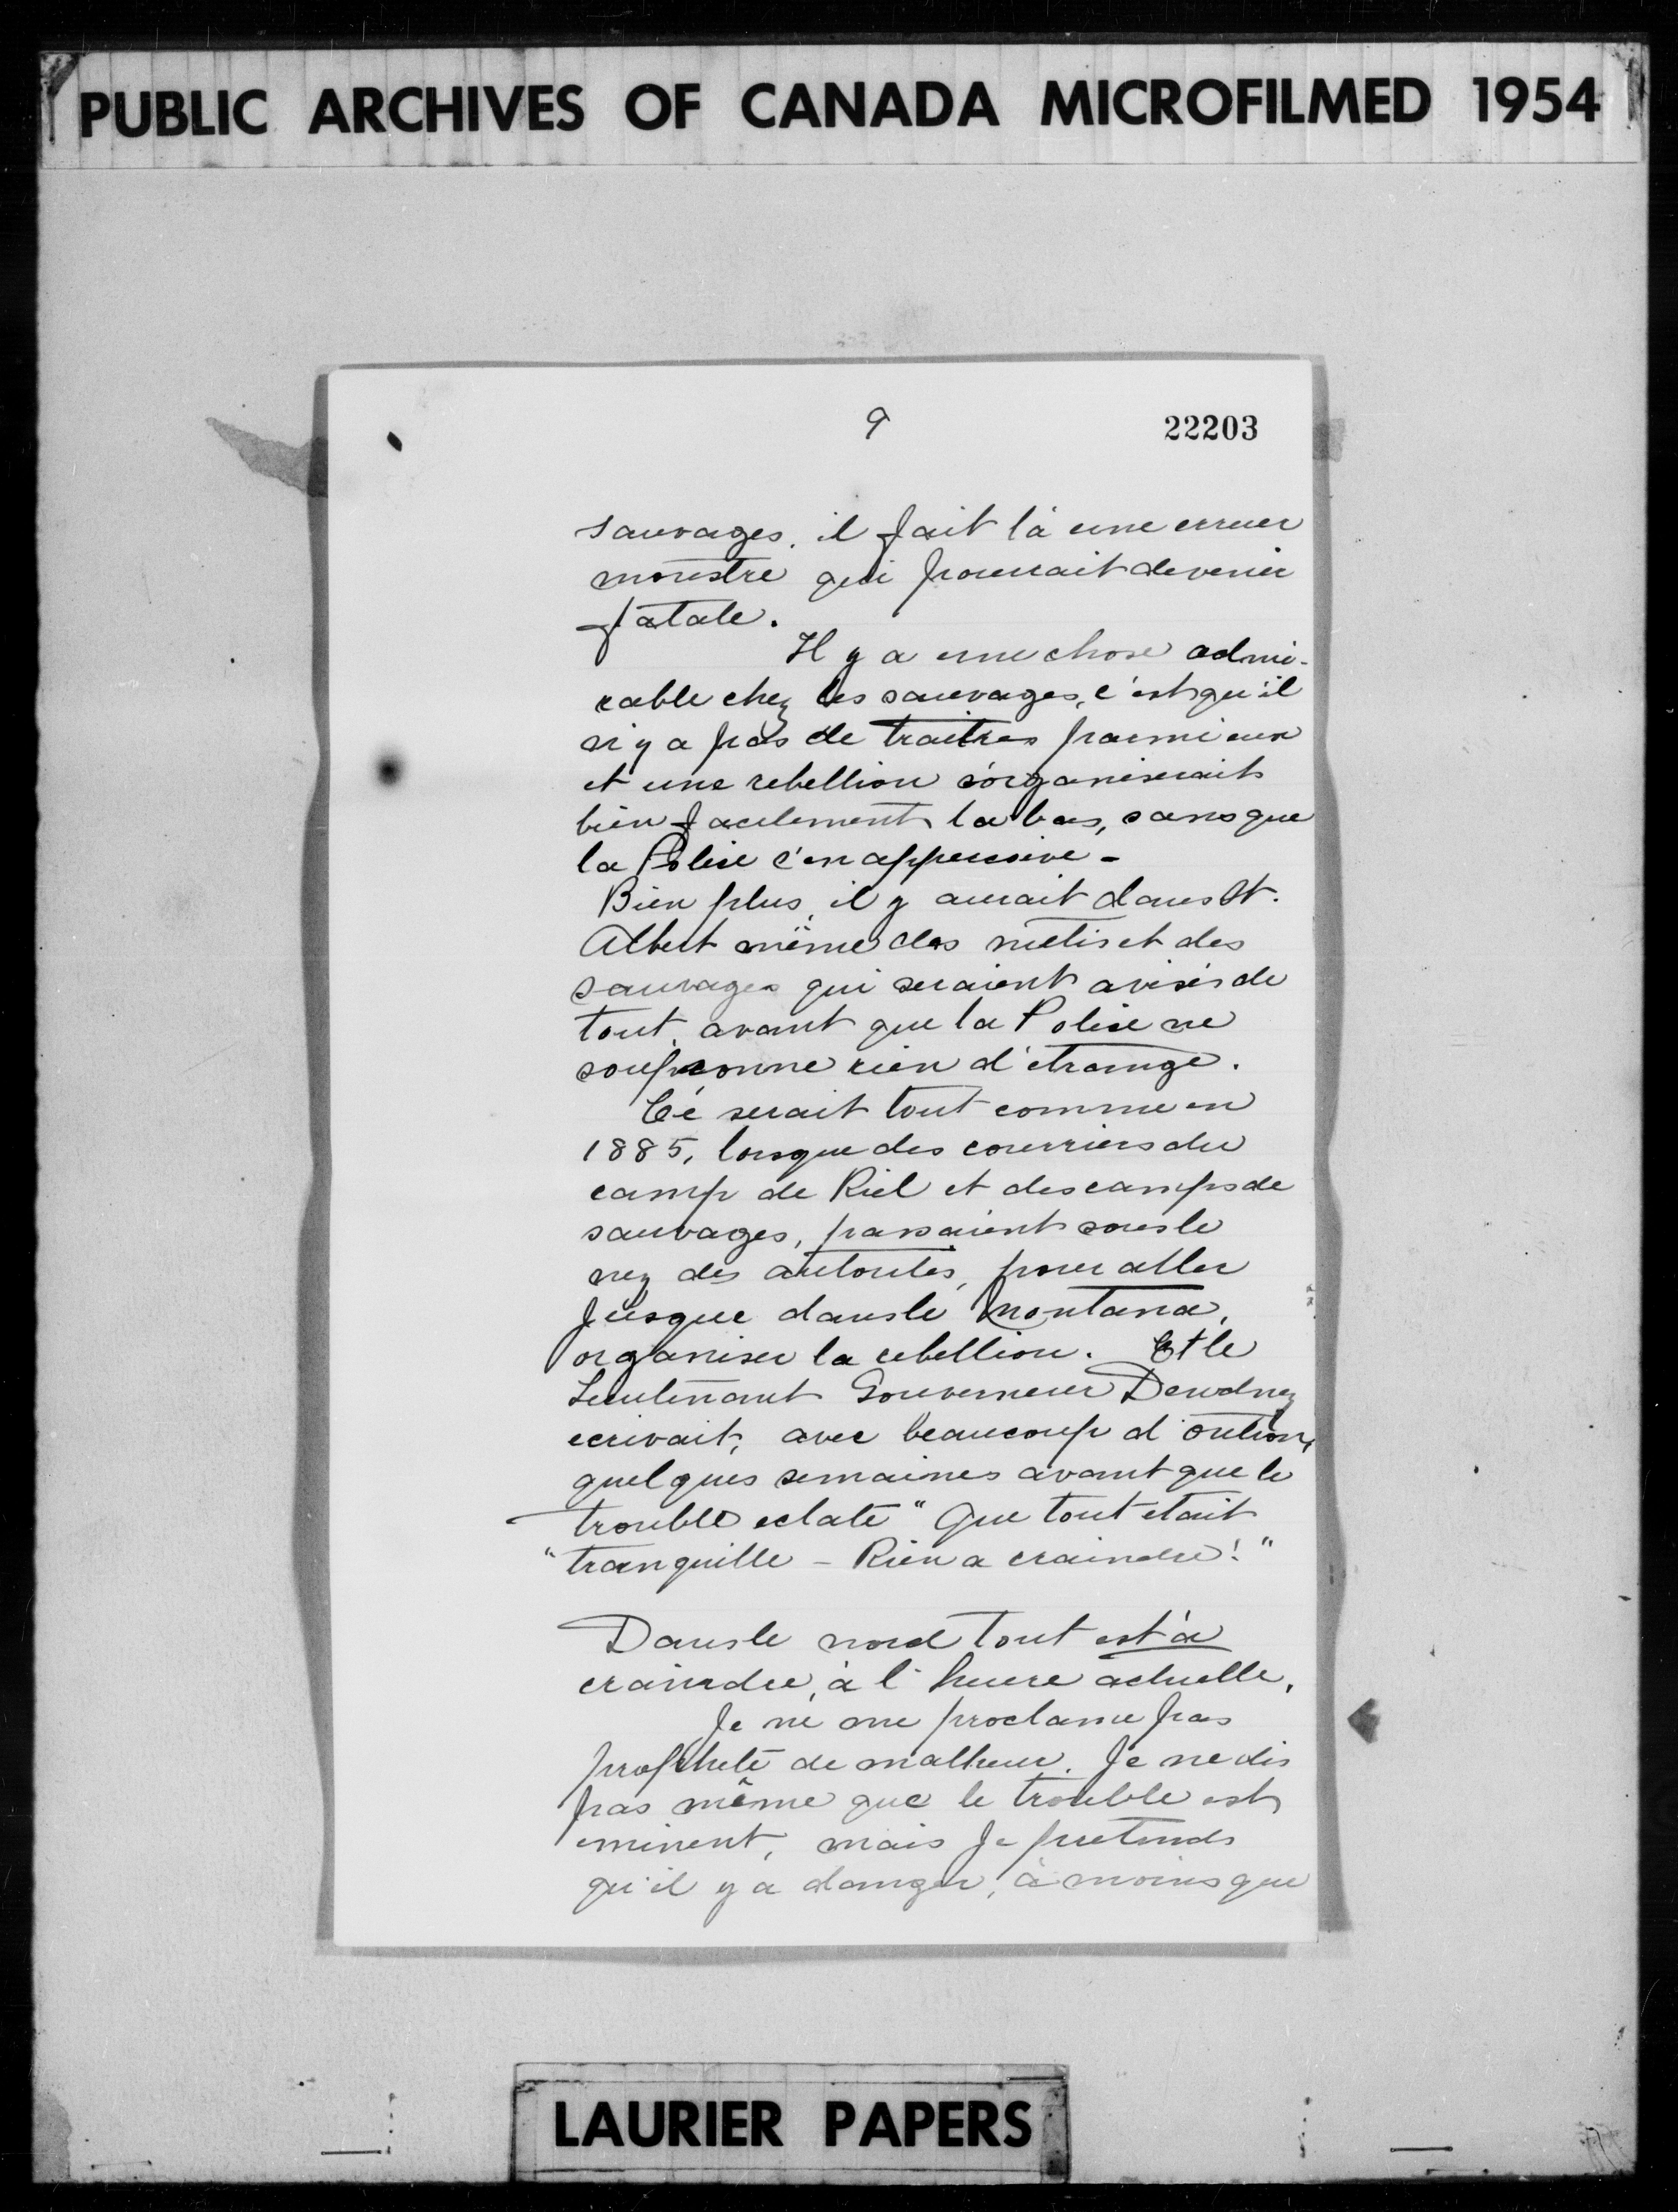 PUBLIC ARCHIVES OF CANADA MICROFILMED 1954
9
22203
sauvages. il fait là une erreur
monstre qui pourrait devenir
fatale.
Il y a une chose admi-
rable chez les sauvages, c'est qu'il
n'y a pas de traitres parmi eux
et une rebellion s'organiserait
bien facilement la bas, sans que
la Police s'en apperçoive -
Bien plus, il y aurait dans St.
Albert même des métis et des
sauvages qui seraient avisés de
tout, avant que la Police ne
soupçonne rien d'etrange.
Ce serait tout comme en
1885, lorsque des courriers du
camp de Riel et des camps de
sauvages, passaient sous le
nez des autorités, pour aller
jusque dans le Montana,
organiser la rebellion. Et le
Lieutenant Gouverneur Dewdney
ecrivait, avec beaucoup d'
quelques semaines avant que le
trouble eclate "Que tout etait
"tranquille - Rien a craindre!"
Dans le nord tout est à
craindre, à l'heure actuelle.
Je ne me proclame pas
prophete de malheur. Je ne dis
pas même que le trouble est
eminent, mais je pretends
qu'il y a danger, à moins que
LAURIER PAPERS